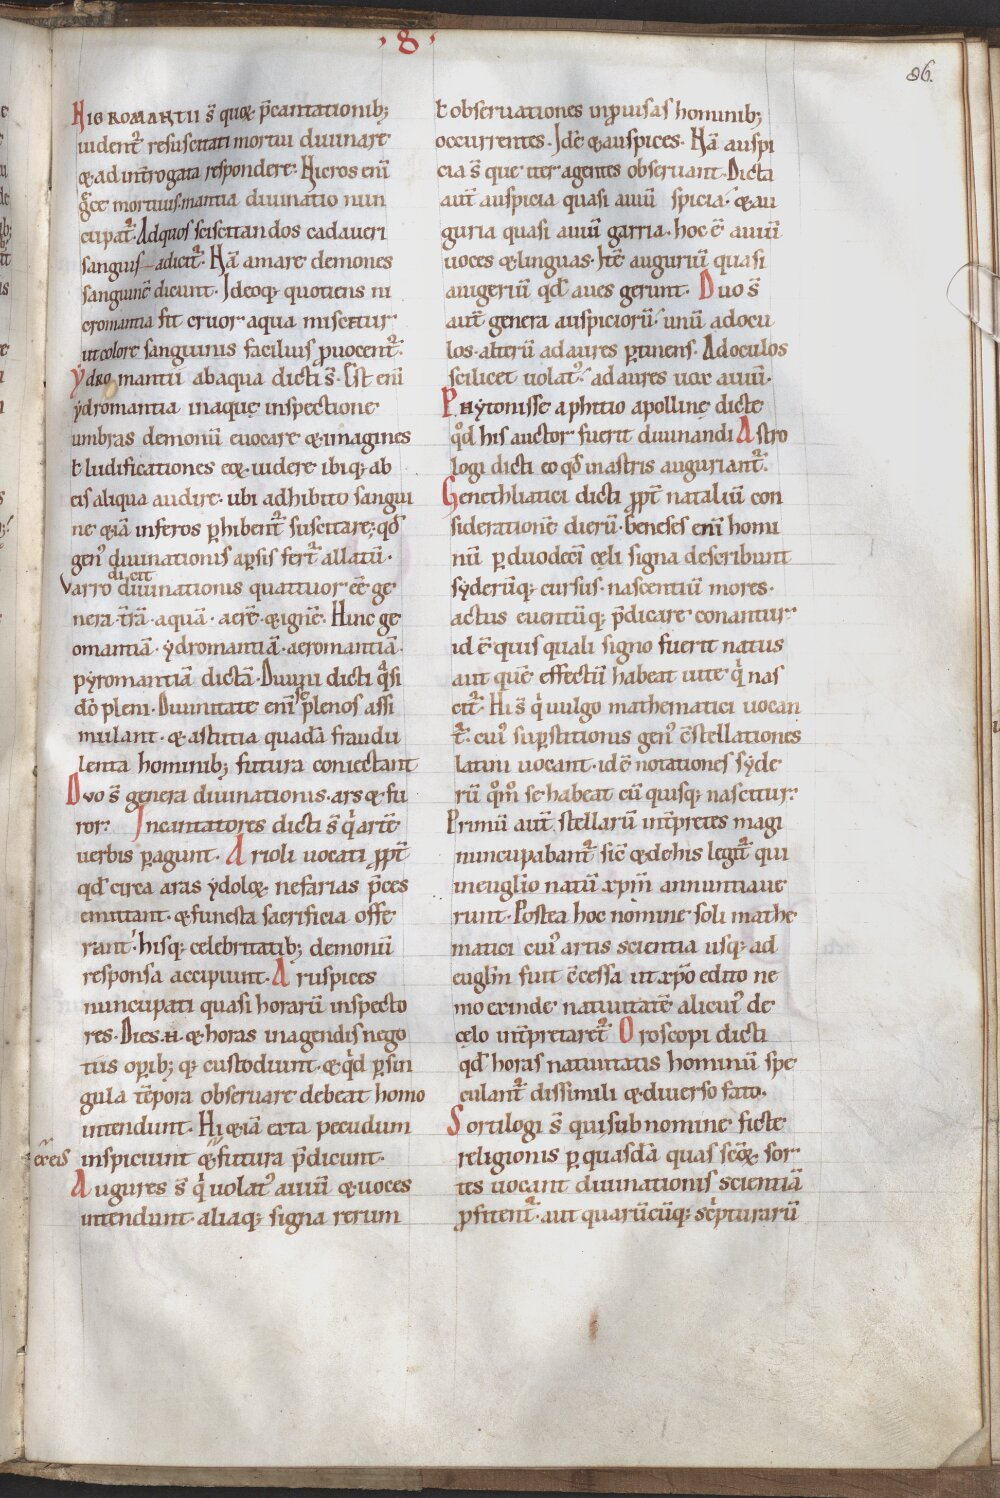 ·8·
86.
HIGROMANTII s̄ quoꝝ p̄cantationibꝫ
uident᷑ resuscitati mortui diuinare
⁊ ad int̄rogata respondere. Hieros eni᷑
g̃ce mortuus. mantia diuinatio nun
cupat᷑. Ad quos sciscitandos cadaueri
sanguis adicit᷑. Nā amare demones
sanguinē dicunt. Ideoqꝫ quotiens ni
cromantia fit cruor aqua miscitur
ut colore sanguinis facilius ꝓuocent᷑.
Ydromantii ab aqua dicti s̄. Est eni᷑
ydromantia in aquę inspectione
umbras demonū euocare ⁊ imagines
ł ludificationes eoꝝ uidere ibiqꝫ ab
eis aliqua audire. ubi adhibito sangui
ne ⁊iā inferos ꝑhibent᷑ suscitare; qđ
genꝰ diuinationis a ꝑsis fert᷑ allatū.
dicit
Varro diuinationis quattuor eē ge
nera. t̄rā. aquā. aerē. ⁊ ignē. Hinc ge
omantiā. ydromantiā. aeromantiā.
pyromantiā dictā. Diuini dicti q̄si
dō pleni. Diuinitate eni᷑ se plenos assi
mulant. ⁊ astutia quadā fraudu
lenta hominibꝫ futura coniectant
Duo s̄ genera diuinationis. ars ⁊ fu
ror. Incantatores dicti s̄ q̇ artē
uerbis ꝑagunt. Arioli uocati ꝓpt̄
qđ circa aras ydoloꝝ nefarias p̄ces
emittant. ⁊ funesta sacrificia offe
rant. hisqꝫ celebritatibꝫ demonū
responsa accipiunt. Aruspices
nuncupati quasi horarū inspecto
res. Dies .n. ⁊ horas in agendis nego
tiis oꝑibꝫ qꝫ custodiunt. ⁊ q̇d ꝑ sin
gula tēpora obseruare debeat homo
intendunt. Hi ⁊iā exta pecudum
ex eis inspiciunt ⁊ futura p̄dicunt.
Augures s̄ q̇ uolatꝰ auiū ⁊ uoces
intendunt. aliaqꝫ signa rerum
ł obseruationes inprouisas hominibꝫ
occurrentes. Idē ⁊ auspices. Nā auspi
cia s̄ que iter agentes obseruant. Dicta
aut̄ auspicia quasi auiū spicia. ⁊ au
guria quasi auiū garria. hoc ē auiū
uoces ⁊ linguas. Itē auguriū quasi
auigeriū qđ aues gerunt. Duo s̄
aut̄ genera auspiciorū. unū ad ocu
los. alterū ad aures ꝑtinens. Ad oculos
scilicet uolatꝰ. ad aures uox auiū.
Phytonisse a phitio apolline dictę
qđ his auctor fuerit diuinandi Astro
logi dicti eo qđ in astris auguriant᷑.
Genethliatici dicti ꝓpt̄ nataliū con
siderationē dierū. Geneses eni᷑ homi
nū ꝑ duodeci᷑ cęli signa describunt
syderūqꝫ cursus. nascentiū mores.
actus euentūqꝫ p̄dicare conantur.
id ē quis quali signo fuerit natus
aut quē effectū habeat uite q̇ nas
cit᷑. Hi s̄ q̇ uulgo mathematici uocan
t᷑. cuiꝰ suꝑstitionis genꝰ c̄stellationes
latini uocant. id ē notationes syde
rū qm̊ se habeat cū quisqꝫ nascitur.
Primū aut̄ stellarū int̄pretes magi
nuncupabant᷑ sic̄ ⁊ de his legit᷑ qui
in euglio natū xp̄m annuntiaue
runt. Postea hoc nomine soli mathe
matici cuiꝰ artis scientia usqꝫ ad
euglm̄ fuit c̄cessa ut xp̄o edito ne
mo exinde natiuitatē alicuiꝰ de
cęlo int̄pretaret᷑ Oroscopi dicti
qđ horas natiuitatis hominū spe
culant᷑ dissimili ⁊ diuerso fato.
Sortilogi s̄ qui sub nomine ficte
religionis ꝑ quasdā quas sc̄oꝝ sor
tes uocant diuinationis scientiā
ꝓfitent᷑. aut quarūcūqꝫ sċpturarū